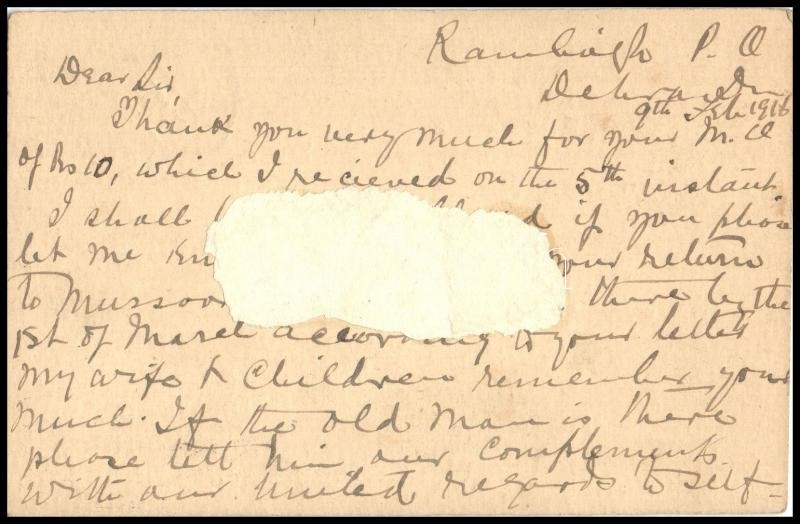 P. O
Dear Sir
9th Feb 1916
Thank you very much for your M. O
of Rs 10, which I recieved on the 5th instant
I shall if you please
let me your return
to there by the
1st of March according to your letter
my wife & Children remember your
much. If the old man is there
please tell him our complements
with our united regards to self-